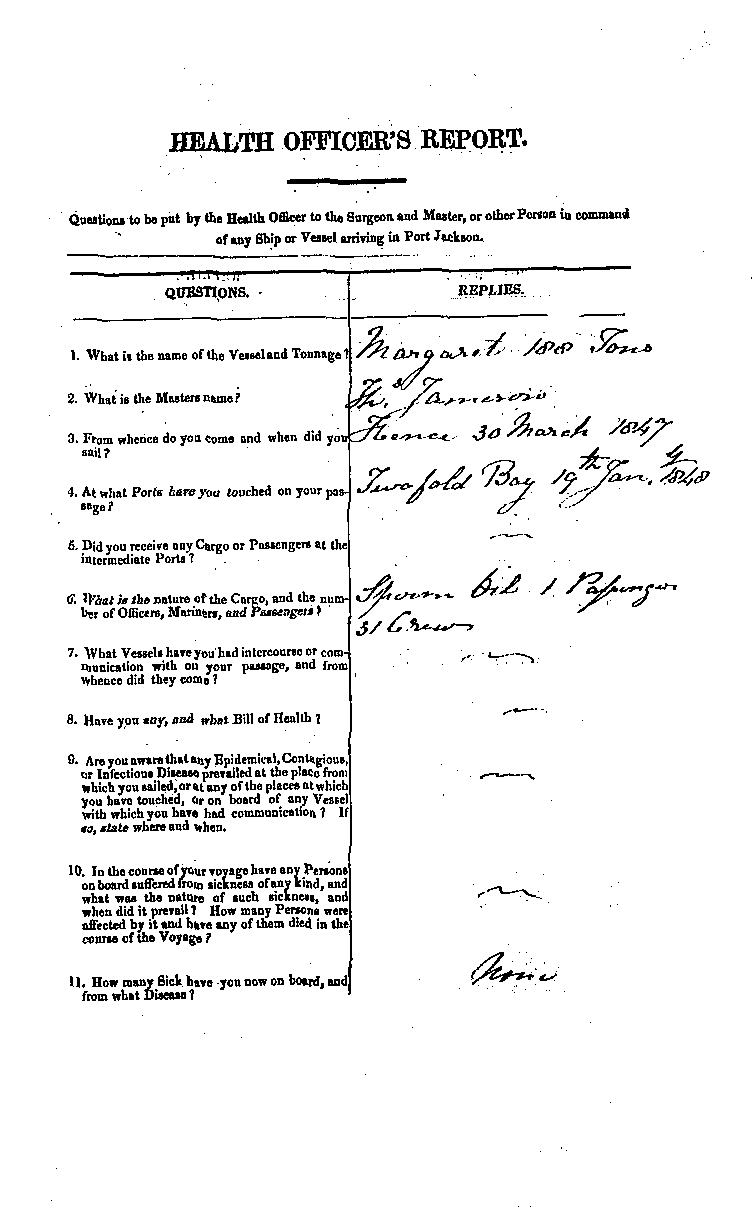 HEALTH OFFICER'S REPORT.
Questions to be put by the Health Officer to the Surgeon and Master, or other Person in command
of any Ship or Vessel arriving in Port Jackson.
QUESTIONS.
REPLIES.
1. What is the name of the Vessel and Tonnage?
Margaret 188 Tons
2. What is the Masters name?
Ths. Jameson
3. From whence do you come and when did you
sail?
Hence 30 March 1847
4. At what Ports have you touched on your pas-
sage?
Twofold Bay 19th Jany. 1848
5. Did you receive any Cargo or Passengers at the
intermediate Ports?
6. What is the nature of the Cargo, and the num-
ber of Officers, Mariners, and Passengers?
Sperm Oil 1 Passenger
31 Crew
7. What Vessels have you had intercourse or com-
munication with on your passage, and from
whence did they come?
8. Have you any, and what Bill of Health?
9. Are you aware that any Epidemical, Contagious,
or Infectious Disease prevailed at the place from
which you sailed, or at any of the places at which
you have touched, or on board of any Vessel
with which you have had communication? If
so, state where and when.
10. In the course of your voyage have any Persons
on board suffered from sickness of any kind, and
what was the nature of such sickness, and
when did it prevail? How many Persons were
affected by it and have any of them died in the
course of the Voyage?
11. How many Sick have you now on board, and
from what Disease?
None